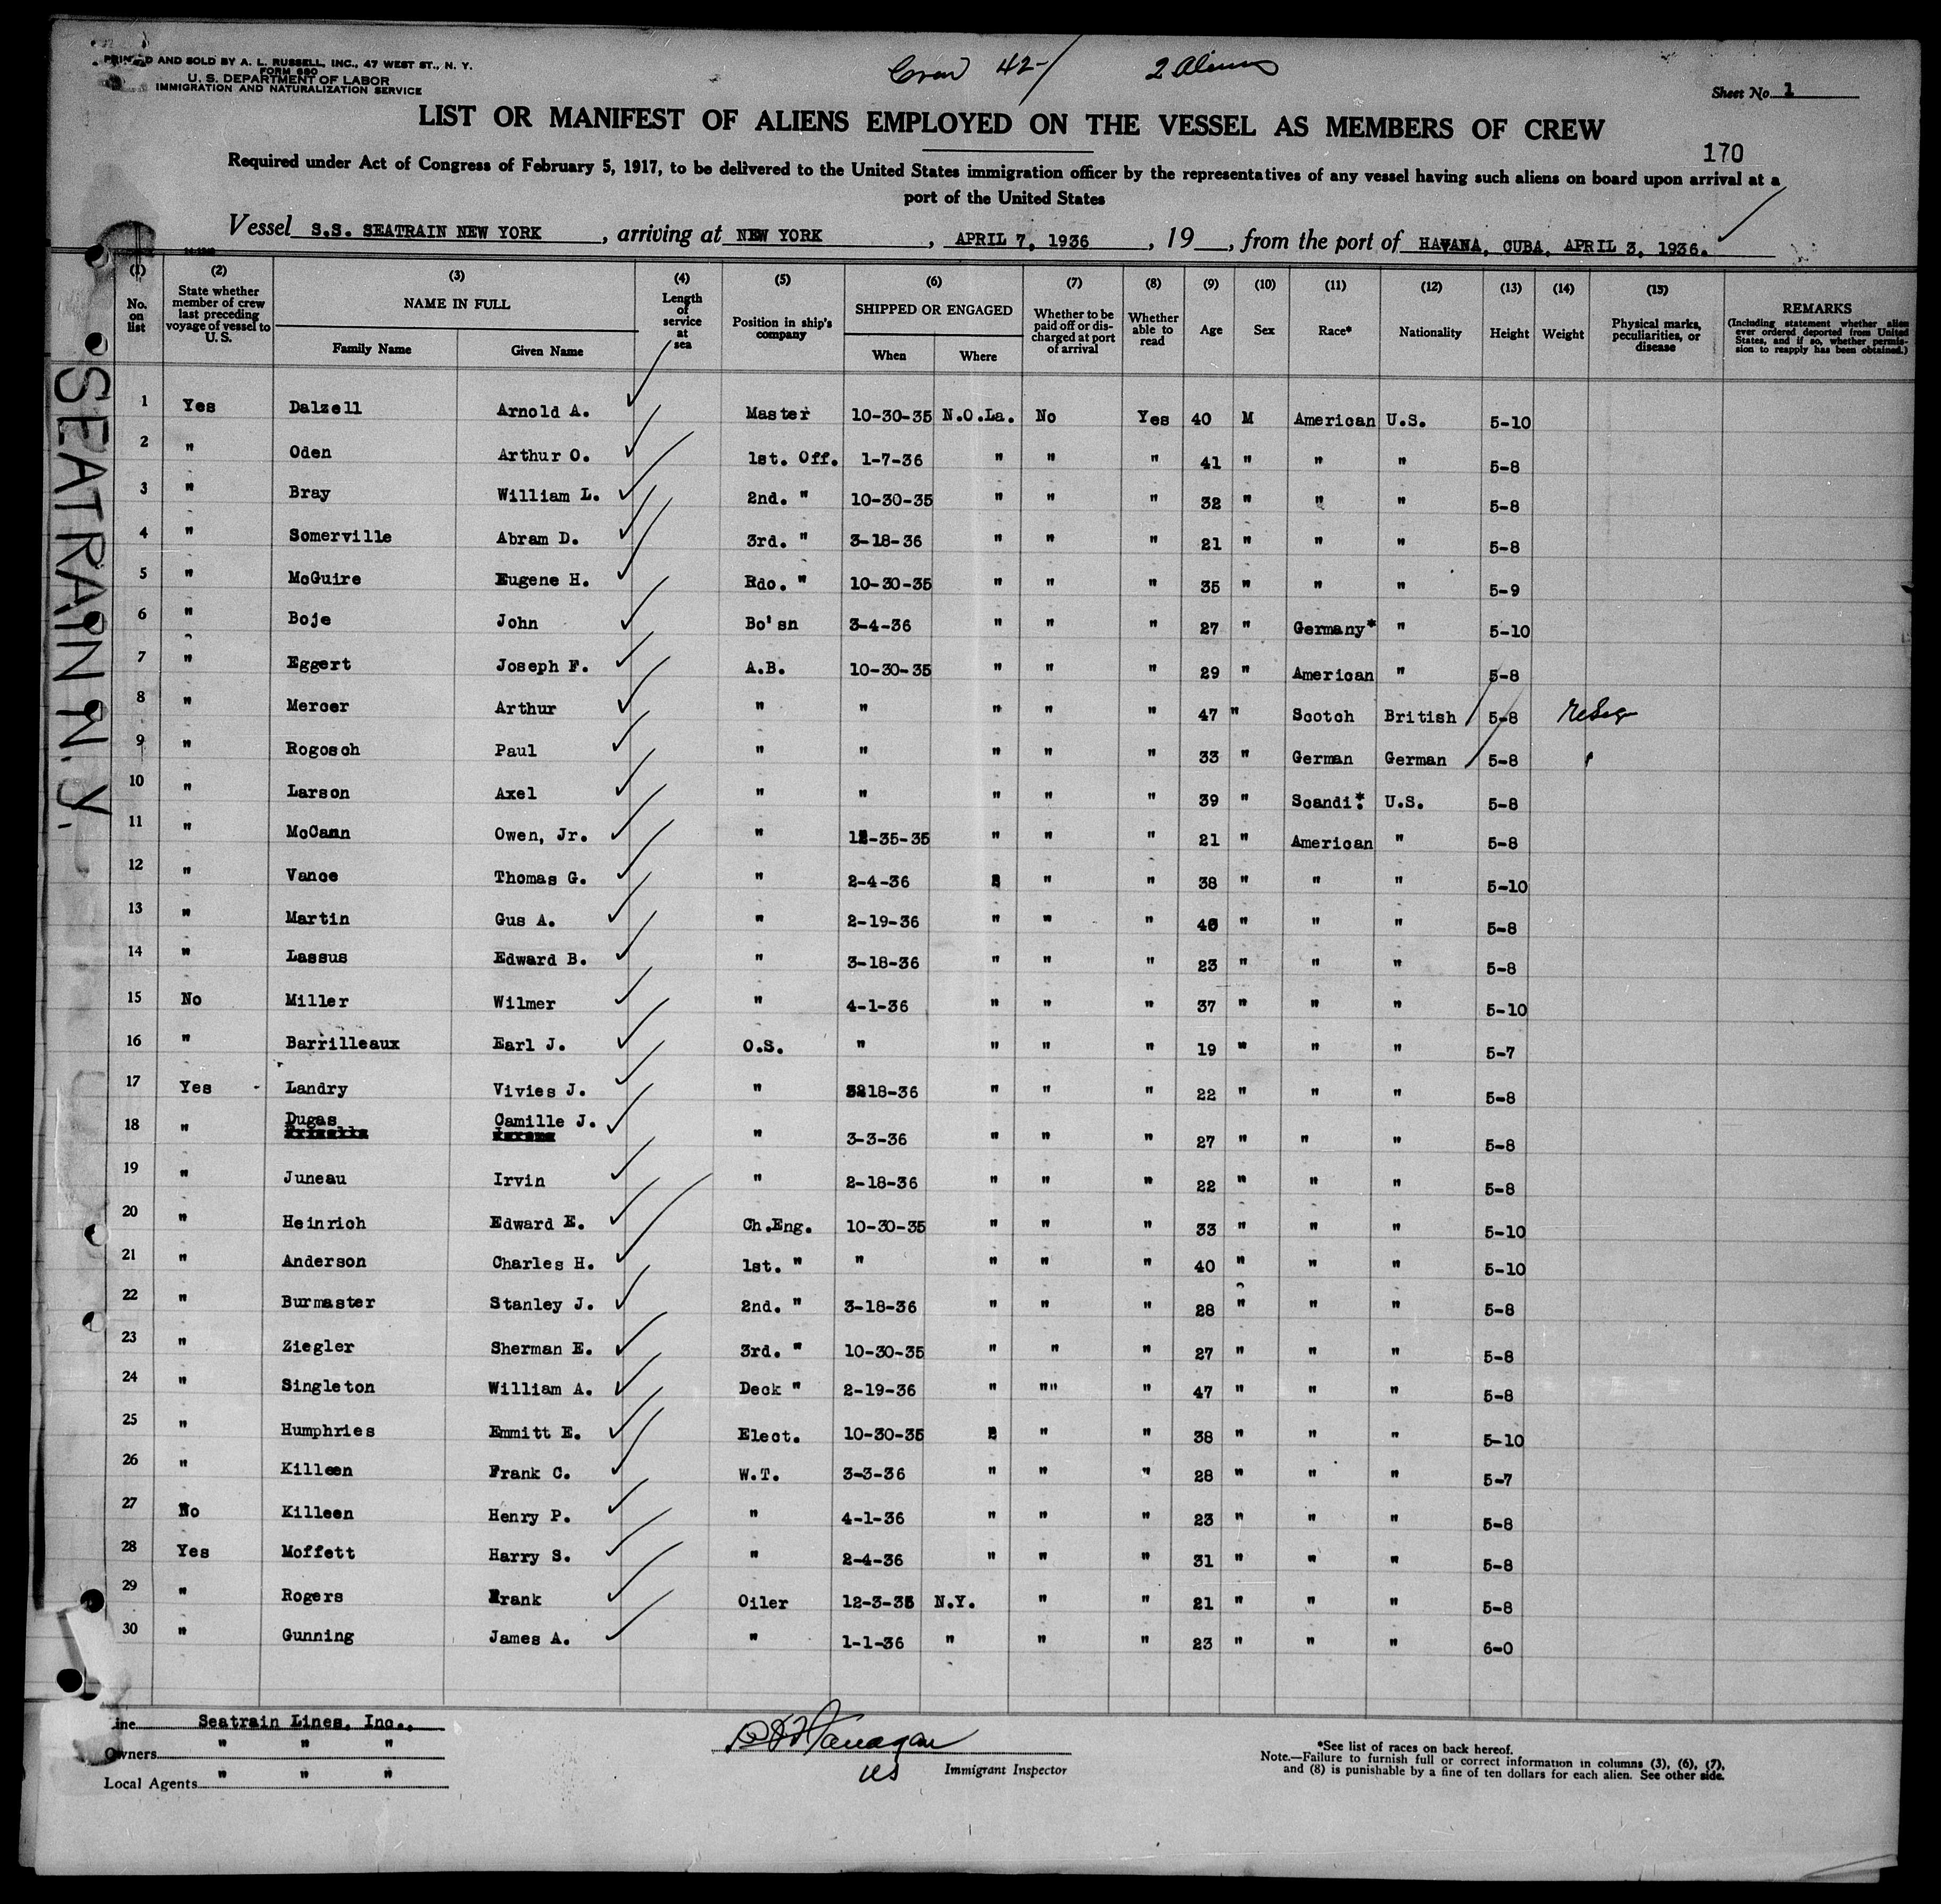 PRINTED AND SOLD BY A. L. RUSSELL, INC., 47 WEST ST., N. Y.
FORM 680
U. S. DEPARTMENT OF LABOR
IMMIGRATION AND NATURALIZATION SERVICE
Crew 42- 2 Aliens
Sheet No. 1
LIST OR MANIFEST OF ALIENS EMPLOYED ON THE VESSEL AS MEMBERS OF CREW
170
Required under Act of Congress of February 5, 1917, to be delivered to the United States immigration officer by the representatives of any vessel having such aliens on board upon arrival at a
port of the United States
Vessel S.S. SEATRAIN NEW YORK, arriving at NEW YORK, APRIL 7, 1936, 19__, from the port of HAVANA, CUBA, APRIL 3, 1936.
SEATRAIN N.Y.
(1) (2) (3) (4) (5) (6) (7) (8) (9) (10) (11) (12) (13) (14) (15)
No. on list
State whether member of crew last preceding voyage of vessel to U. S.
NAME IN FULL
Family Name Given Name
Length of service at sea
Position in ship's company
SHIPPED OR ENGAGED
When Where
Whether to be paid off or discharged at port of arrival
Whether able to read
Age Sex Race* Nationality Height Weight
Physical marks, peculiarities, or disease
REMARKS
(Including statement whether alien ever ordered deported from United States, and if so, whether permission to reapply has been obtained.)
1 Yes Dalzell Arnold A. Master 10-30-35 N.O.La. No Yes 40 M American U.S. 5-10
2 " Oden Arthur O. 1st. Off. 1-7-36 " " " 41 " " " 5-8
3 " Bray William L. 2nd. " 10-30-35 " " " 32 " " " 5-8
4 " Somerville Abram D. 3rd. " 3-18-36 " " " 21 " " " 5-8
5 " McGuire Eugene H. Rdo. " 10-30-35 " " " 35 " " " 5-9
6 " Boje John Bo'sn 3-4-36 " " " 27 " Germany* " 5-10
7 " Eggert Joseph F. A.B. 10-30-35 " " " 29 " American " 5-8
8 " Mercer Arthur " " " " " 47 " Scotch British 5-8
9 " Rogosch Paul " " " " " 33 " German German 5-8
10 " Larson Axel " " " " " 39 " Scandi.* U.S. 5-8
11 " McCann Owen, Jr. " 12-35-35 " " " 21 " American " 5-8
12 " Vance Thomas G. " 2-4-36 " " " 38 " " " 5-10
13 " Martin Gus A. " 2-19-36 " " " 46 " " " 5-8
14 " Lassus Edward B. " 3-18-36 " " " 23 " " " 5-8
15 No Miller Wilmer " 4-1-36 " " " 37 " " " 5-10
16 " Barrilleaux Earl J. O.S. " " " " 19 " " " 5-7
17 Yes Landry Vivies J. " 18-36 " " " 22 " " " 5-8
18 " Dugas Camille J. " 3-3-36 " " " 27 " " " 5-8
19 " Juneau Irvin " 2-18-36 " " " 22 " " " 5-8
20 " Heinrich Edward E. Ch.Eng. 10-30-35 " " " 33 " " " 5-10
21 " Anderson Charles H. 1st. " " " " " 40 " " " 5-10
22 " Burmaster Stanley J. 2nd. " 3-18-36 " " " 28 " " " 5-8
23 " Ziegler Sherman E. 3rd. " 10-30-35 " " " 27 " " " 5-8
24 " Singleton William A. Deck " 2-19-36 " "" " 47 " " " 5-8
25 " Humphries Emmitt E. Elect. 10-30-35 " " " 38 " " " 5-10
26 " Killeen Frank C. W.T. 3-3-36 " " " 28 " " " 5-7
27 No Killeen Henry P. " 4-1-36 " " " 23 " " " 5-8
28 Yes Moffett Harry S. " 2-4-36 " " " 31 " " " 5-8
29 " Rogers Frank Oiler 12-3-35 N.Y. " " 21 " " " 5-8
30 " Gunning James A. " 1-1-36 " " " 23 " " " 6-0
Line Seatrain Lines, Inc.,
Owners " " "
Local Agents " " "
Flanagan
Immigrant Inspector
*See list of races on back hereof.
Note.—Failure to furnish full or correct information in columns (3), (6), (7),
and (8) is punishable by a fine of ten dollars for each alien. See other side.